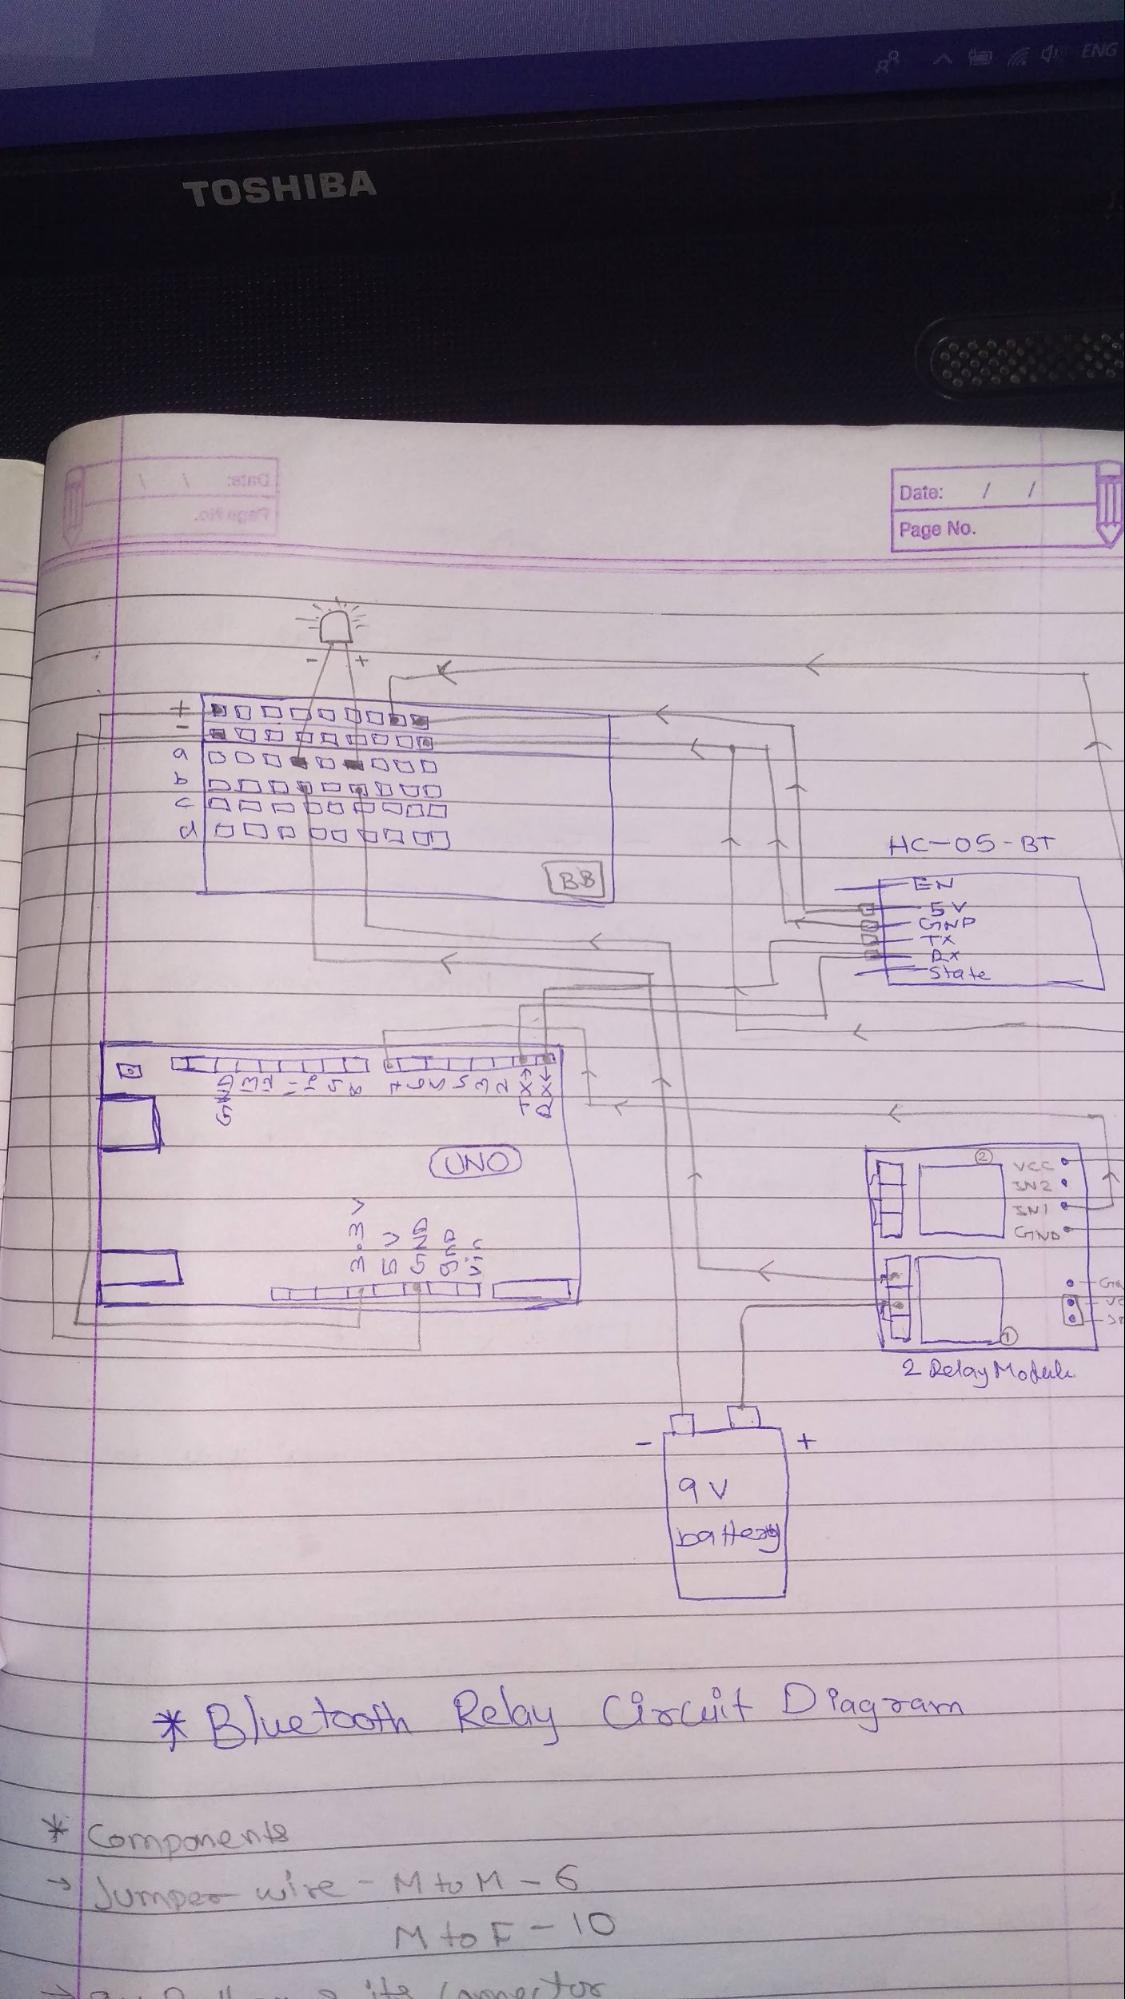 ENG
TOSHIBA
Date: / /
Page No.
- +
+
-
a
b
c
d
BB
HC-05-BT
EN
5V
GND
TX
RX
State
GND 13 12 11 10 9 8 7 6 5 4 3 2 TX→ RX←
UNO
3.3V 5V GND GND Vin
②
VCC
IN2
IN1
GND
①
2 Relay Module
- +
9V
battery
* Bluetooth Relay Circuit Diagram
* Components
→ Jumper wire - M to M - 6
M to F - 10
connector